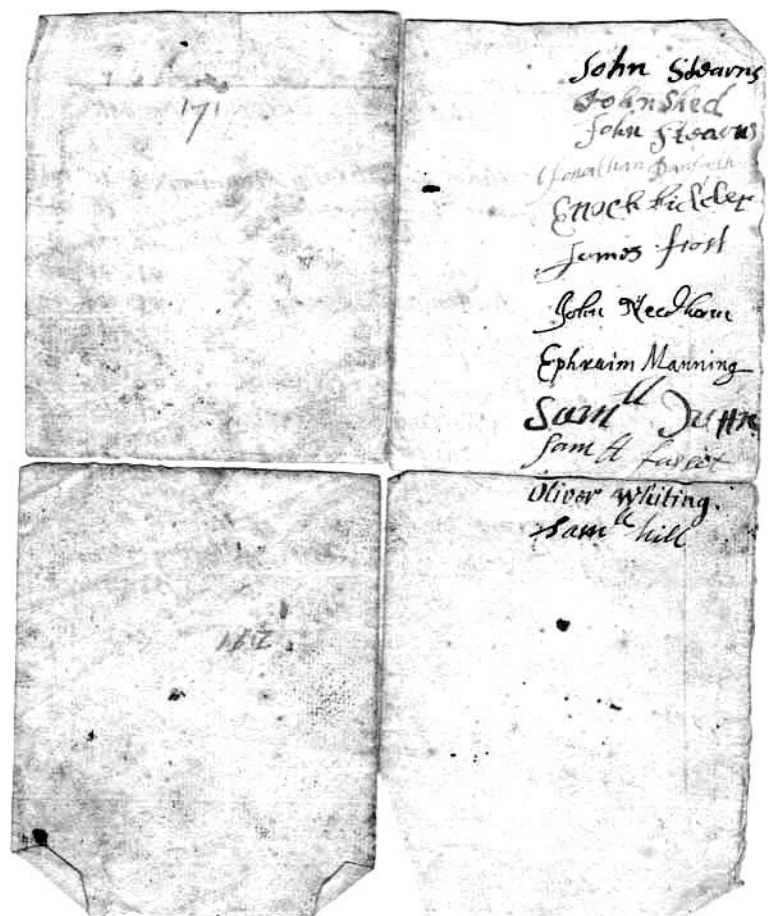 171
John Stearns
John Shed
John Stearns
Jonathan Danforth
Enock kidder
James frost
John Needham
Ephraim Manning
Samll
Samll
Oliver Whiting.
Samll hill